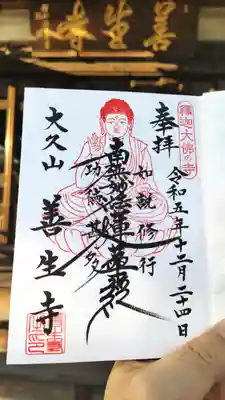 善生寺
釋迦大佛の寺
奉拝
令和五年十二月二十四日
如説修行
南無妙法蓮華経
功徳甚多
大久山
善生寺